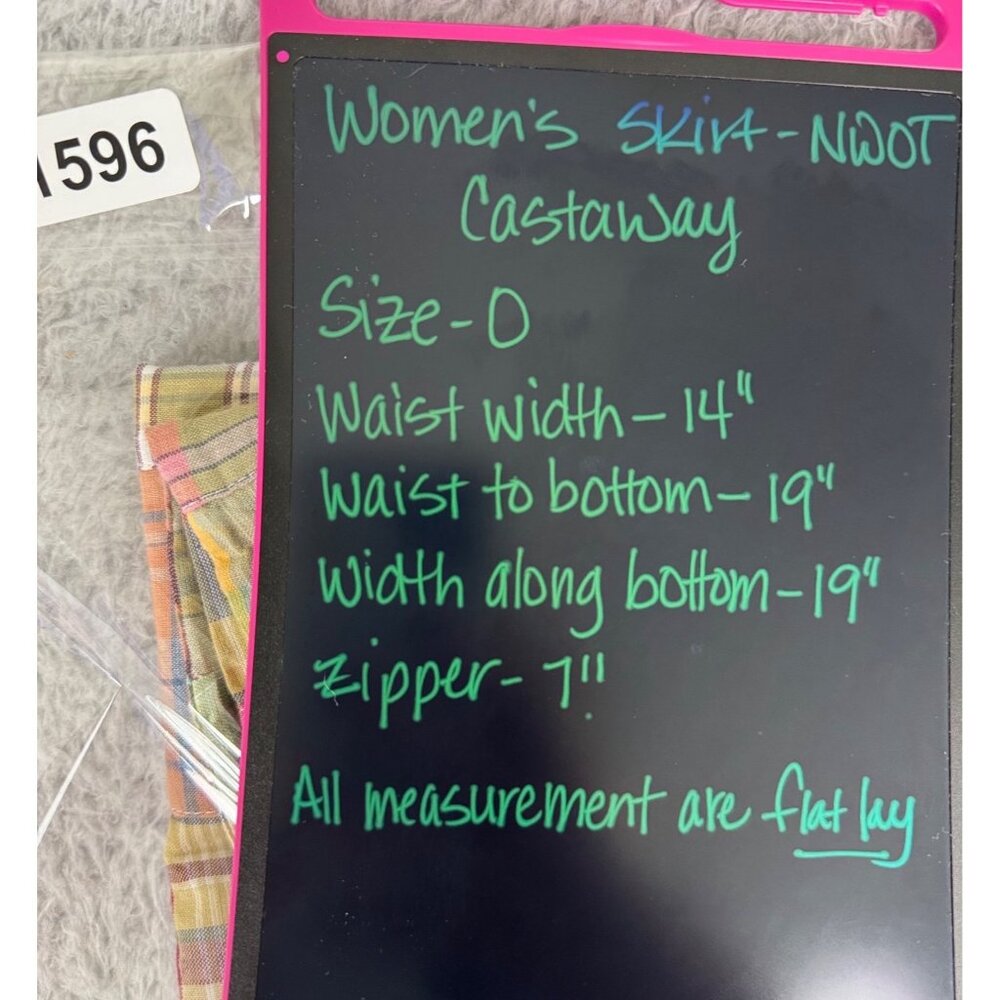 1596
Women's Skirt - NWOT
Castaway
Size - 0
Waist width - 14"
Waist to bottom - 19"
Width along bottom - 19"
Zipper - 7"
All measurement are flat lay